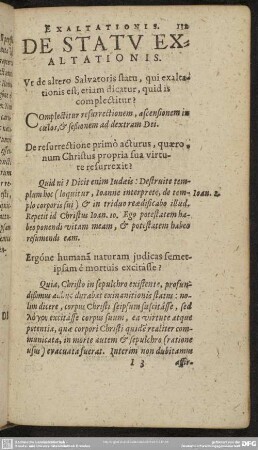 EXALTATIONIS.
DE STATV EX-
ALTATIONIS.
Vt de altero Salvatoris statu, qui exalta-
tionis est, etiam dicatur, quid is
complectitur?
Complectitur resurrectionem, ascensionem in
cœlos, & sessionem ad dextram Dei.
De resurrectione primò acturus, quæro
num Christus propria sua virtu-
te resurrexit?
Quid ni? Dicit enim Iudæis: Destruite tem-
plum hoc (loquitur, Ioanne interprete, de tem-
Ioan. 2.
plo corporis sui) & in triduo reædificabo illud.
Repetit id Christus Ioan. 10. Ego potestatem ha-
beo ponendi vitam meam, & potestatem habeo
resumendi eam.
Ergóne humanā naturam judicas semet-
ipsam è mortuis excitasse?
Quia, Christo in sepulchro existente, profun-
dissimus adhuc durabat exinanitionis status: no-
lim dicere, corpus Christi seipsum suscitâsse, sed
λόγον excitâsse corpus suum, ea virtute atque
potentia, quæ corpori Christi quidē realiter com-
municata, in morte autem & sepulchro (ratione
usus) evacuata fuerat. Interim non dubitamus
I 3